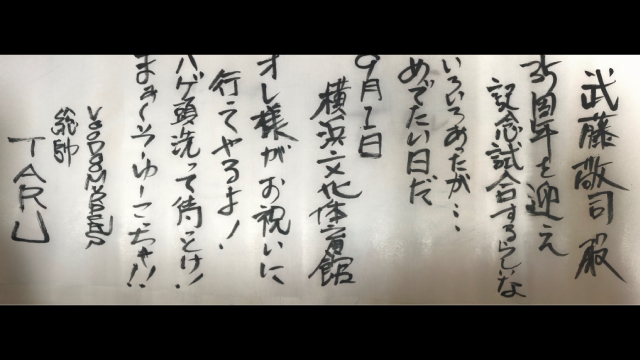 武藤敬司殿
35周年を迎え
記念試合するらしいな
いろいろあったが…
めでたい日だ
9月1日
横浜文化体育館
オレ様がお祝いに
行ってやるよ！
ハゲ頭洗って待っとけ！
まぁ〜そーゆーこっちゃ!!
VOODOOMURDERS
総帥
TARU